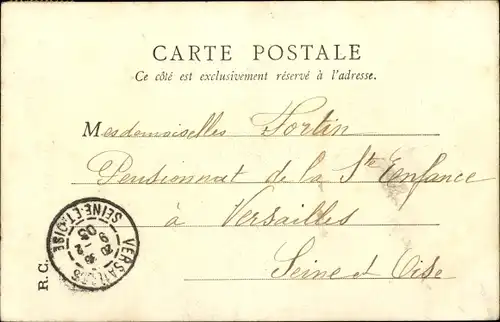 CARTE POSTALE
Ce côté est exclusivement réservé à l'adresse.
Mesdemoiselles Fortin
Pensionnat de la Ste Enfance
à Versailles
Seine et Oise
R. C.
VERSAILLES
SEINE-ET-OISE